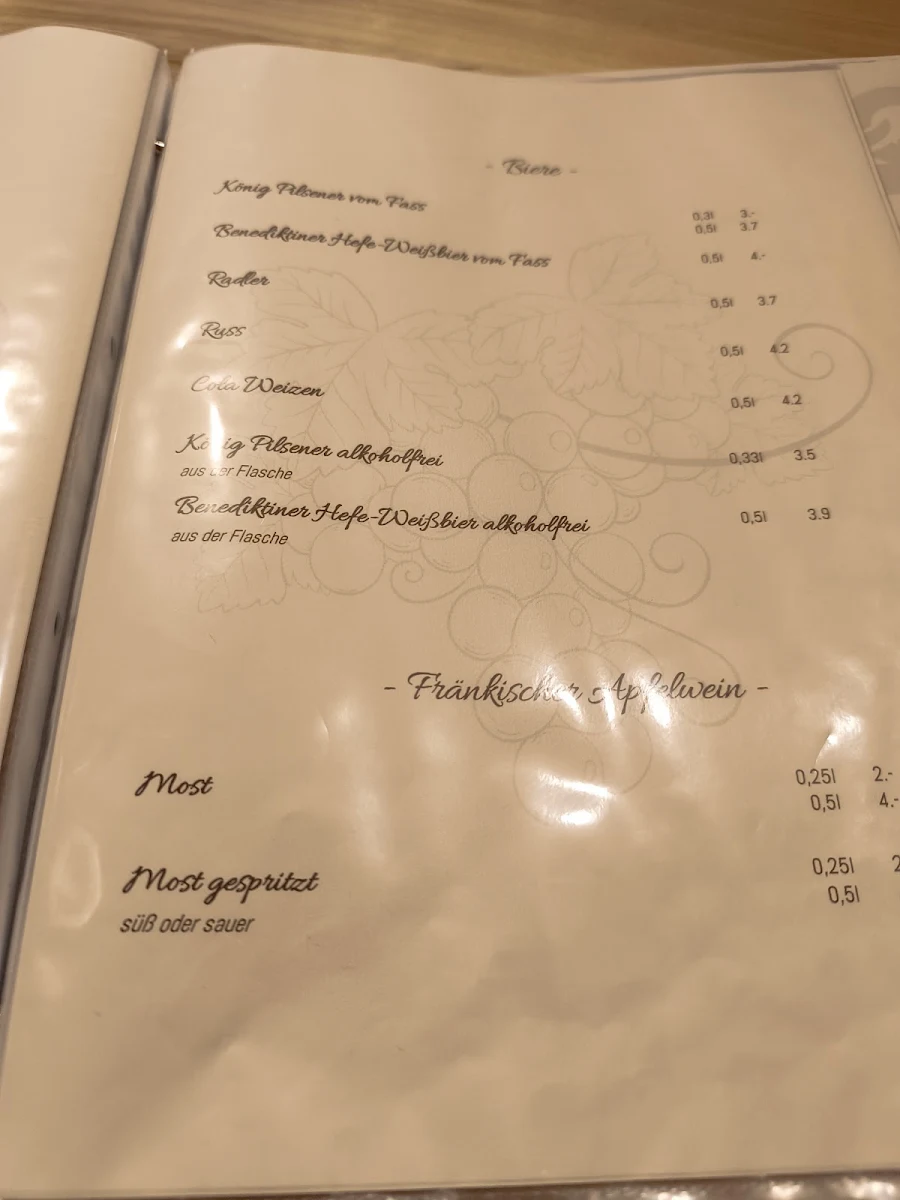 - Biere -
König Pilsener vom Fass
0,3l 3.-
0,5l 3.7
Benediktiner Hefe-Weißbier vom Fass 0,5l 4.-
Radler 0,5l 3.7
Russ 0,5l 4.2
Cola Weizen 0,5l 4.2
König Pilsener alkoholfrei 0,33l 3.5
aus der Flasche
Benediktiner Hefe-Weißbier alkoholfrei 0,5l 3.9
aus der Flasche
- Fränkischer Apfelwein -
Most 0,25l 2.-
0,5l 4.-
Most gespritzt 0,25l
0,5l
süß oder sauer